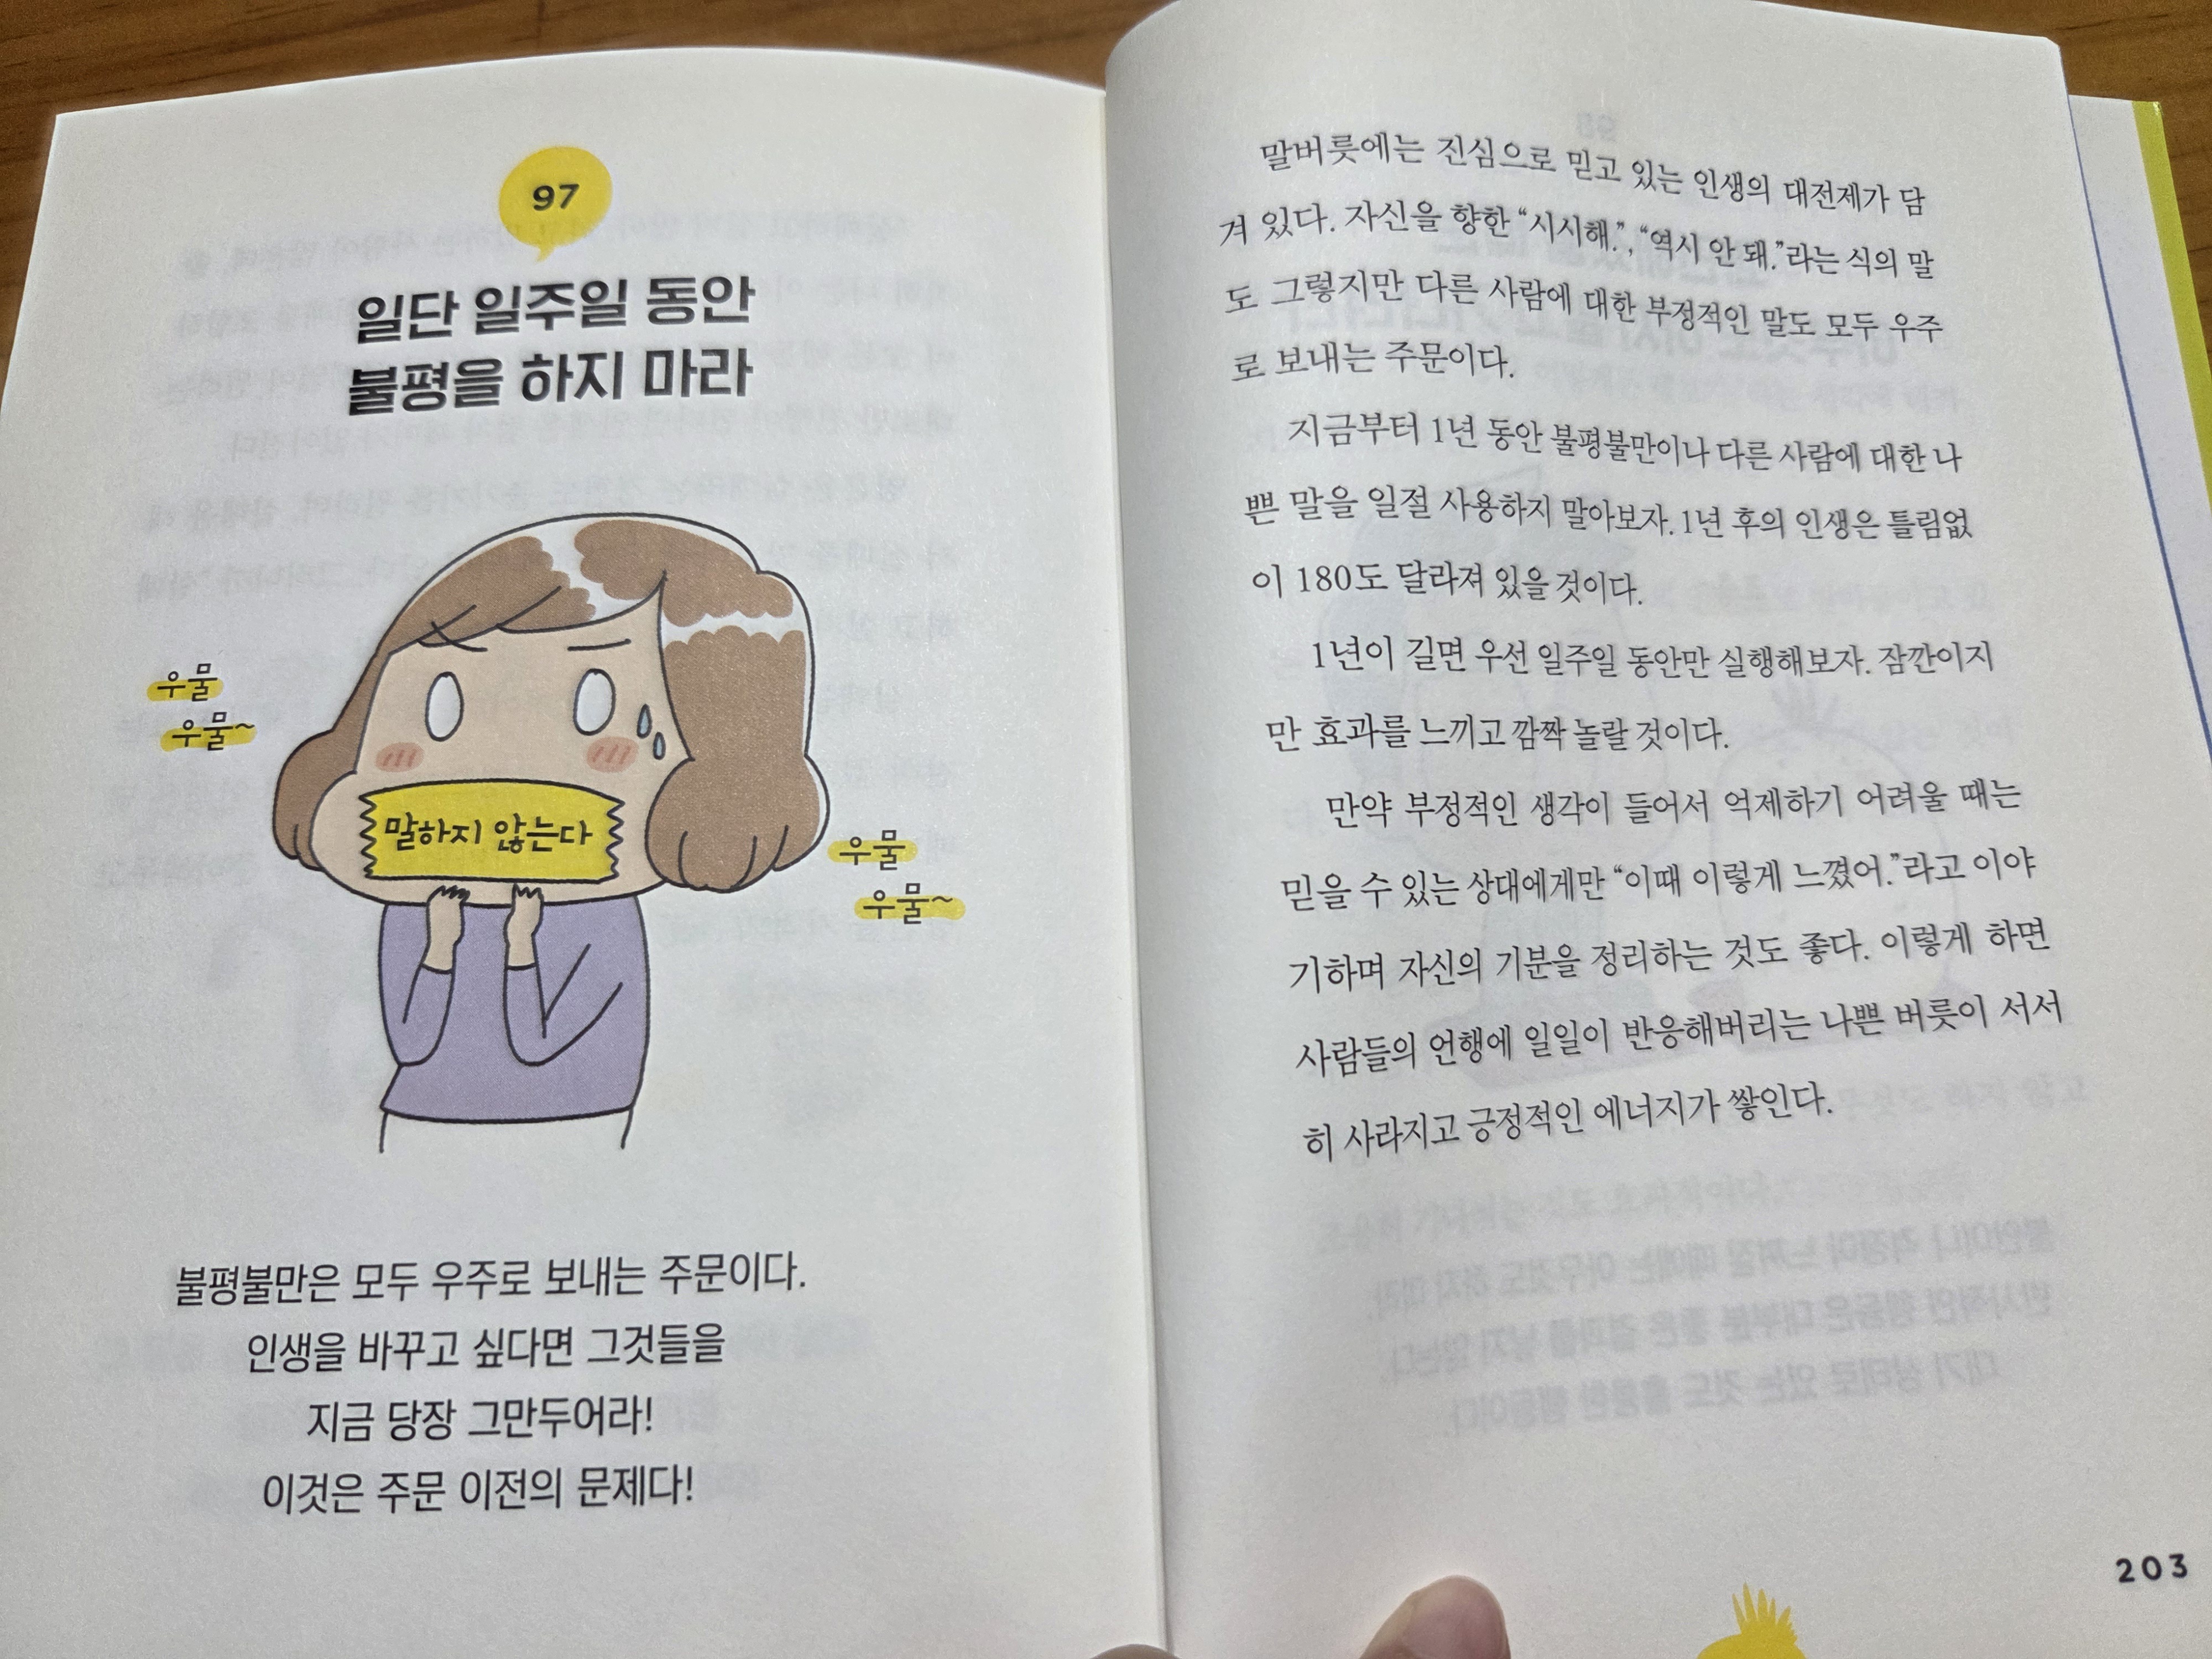 97
일단 일주일 동안
불평을 하지 마라
우물
우물~
말하지 않는다
우물
우물~
불평불만은 모두 우주로 보내는 주문이다.
인생을 바꾸고 싶다면 그것들을
지금 당장 그만두어라!
이것은 주문 이전의 문제다!
말버릇에는 진심으로 믿고 있는 인생의 대전제가 담
겨 있다. 자신을 향한 “시시해.”, “역시 안 돼.”라는 식의 말
도 그렇지만 다른 사람에 대한 부정적인 말도 모두 우주
로 보내는 주문이다.
지금부터 1년 동안 불평불만이나 다른 사람에 대한 나
쁜 말을 일절 사용하지 말아보자. 1년 후의 인생은 틀림없
이 180도 달라져 있을 것이다.
1년이 길면 우선 일주일 동안만 실행해보자. 잠깐이지
만 효과를 느끼고 깜짝 놀랄 것이다.
만약 부정적인 생각이 들어서 억제하기 어려울 때는
믿을 수 있는 상대에게만 “이때 이렇게 느꼈어.”라고 이야
기하며 자신의 기분을 정리하는 것도 좋다. 이렇게 하면
사람들의 언행에 일일이 반응해버리는 나쁜 버릇이 서서
히 사라지고 긍정적인 에너지가 쌓인다.
203